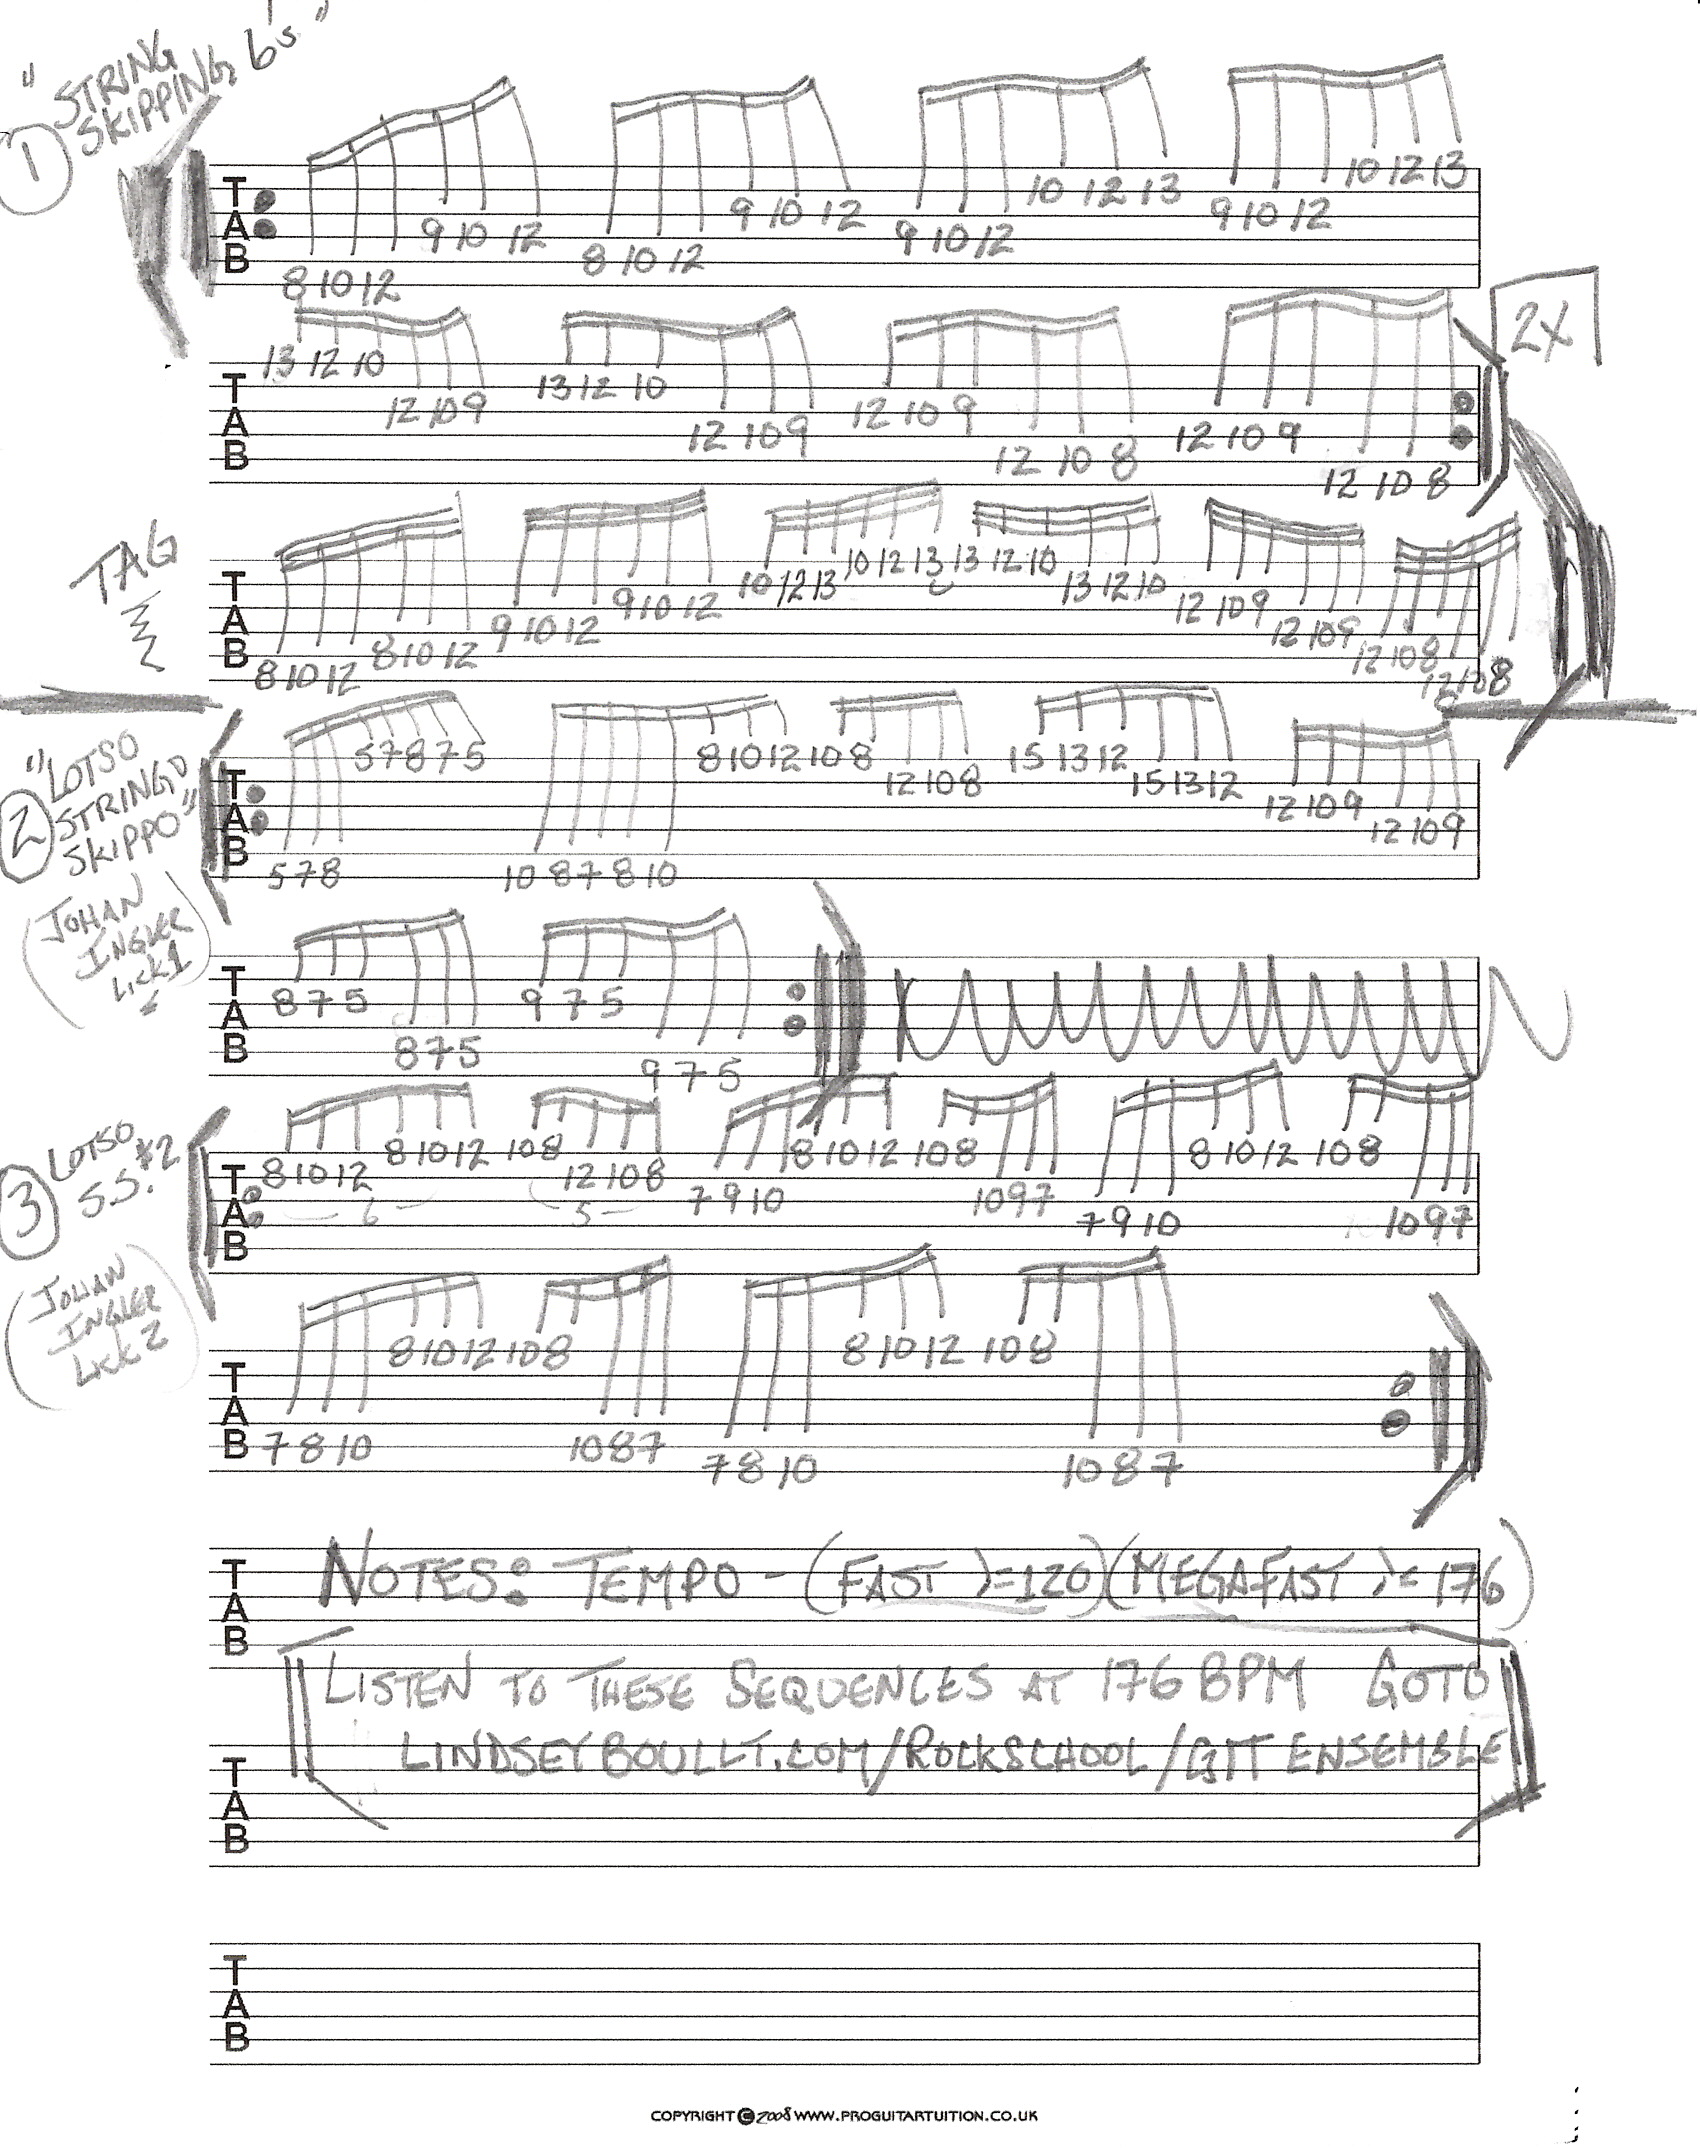 "STRING
SKIPPING 6's"
1
10 12 13 10 12 13
9 10 12 9 10 12 9 10 12 9 10 12
8 10 12 8 10 12
TAB
2X
13 12 10 13 12 10
12 10 9 12 10 9 12 10 9 12 10 9
12 10 8 12 10 8
TAB
TAG
10 12 13 13 12 10
10 12 13 13 12 10
9 10 12 12 10 9
9 10 12 12 10 9
8 10 12 12 10 8
8 10 12 12 10 8
TAB
2
"LOTSO
STRINGO
SKIPPO"
(JOHAN
INGLER
LICK 1)
5 7 8 7 5 8 10 12 10 8 15 13 12
12 10 8 15 13 12
12 10 9
12 10 9
5 7 8 10 8 7 8 10
TAB
8 7 5 9 7 5
8 7 5
9 7 5
TAB
3
LOTSO
S.S. #2
(JOHAN
INGLER
LICK 2)
8 10 12 10 8 8 10 12 10 8 8 10 12 10 8
8 10 12 12 10 8
7 9 10 10 9 7
7 9 10 10 9 7
6 5
TAB
8 10 12 10 8 8 10 12 10 8
7 8 10 10 8 7
7 8 10 10 8 7
TAB
NOTES: TEMPO - (FAST ♩=120) (MEGAFAST ♩= 176)
TAB
LISTEN TO THESE SEQUENCES AT 176 BPM GOTO
LINDSEYBOULLT.COM/ROCKSCHOOL/GIT ENSEMBLE
TAB
TAB
COPYRIGHT © 2008 WWW.PROGUITARTUITION.CO.UK